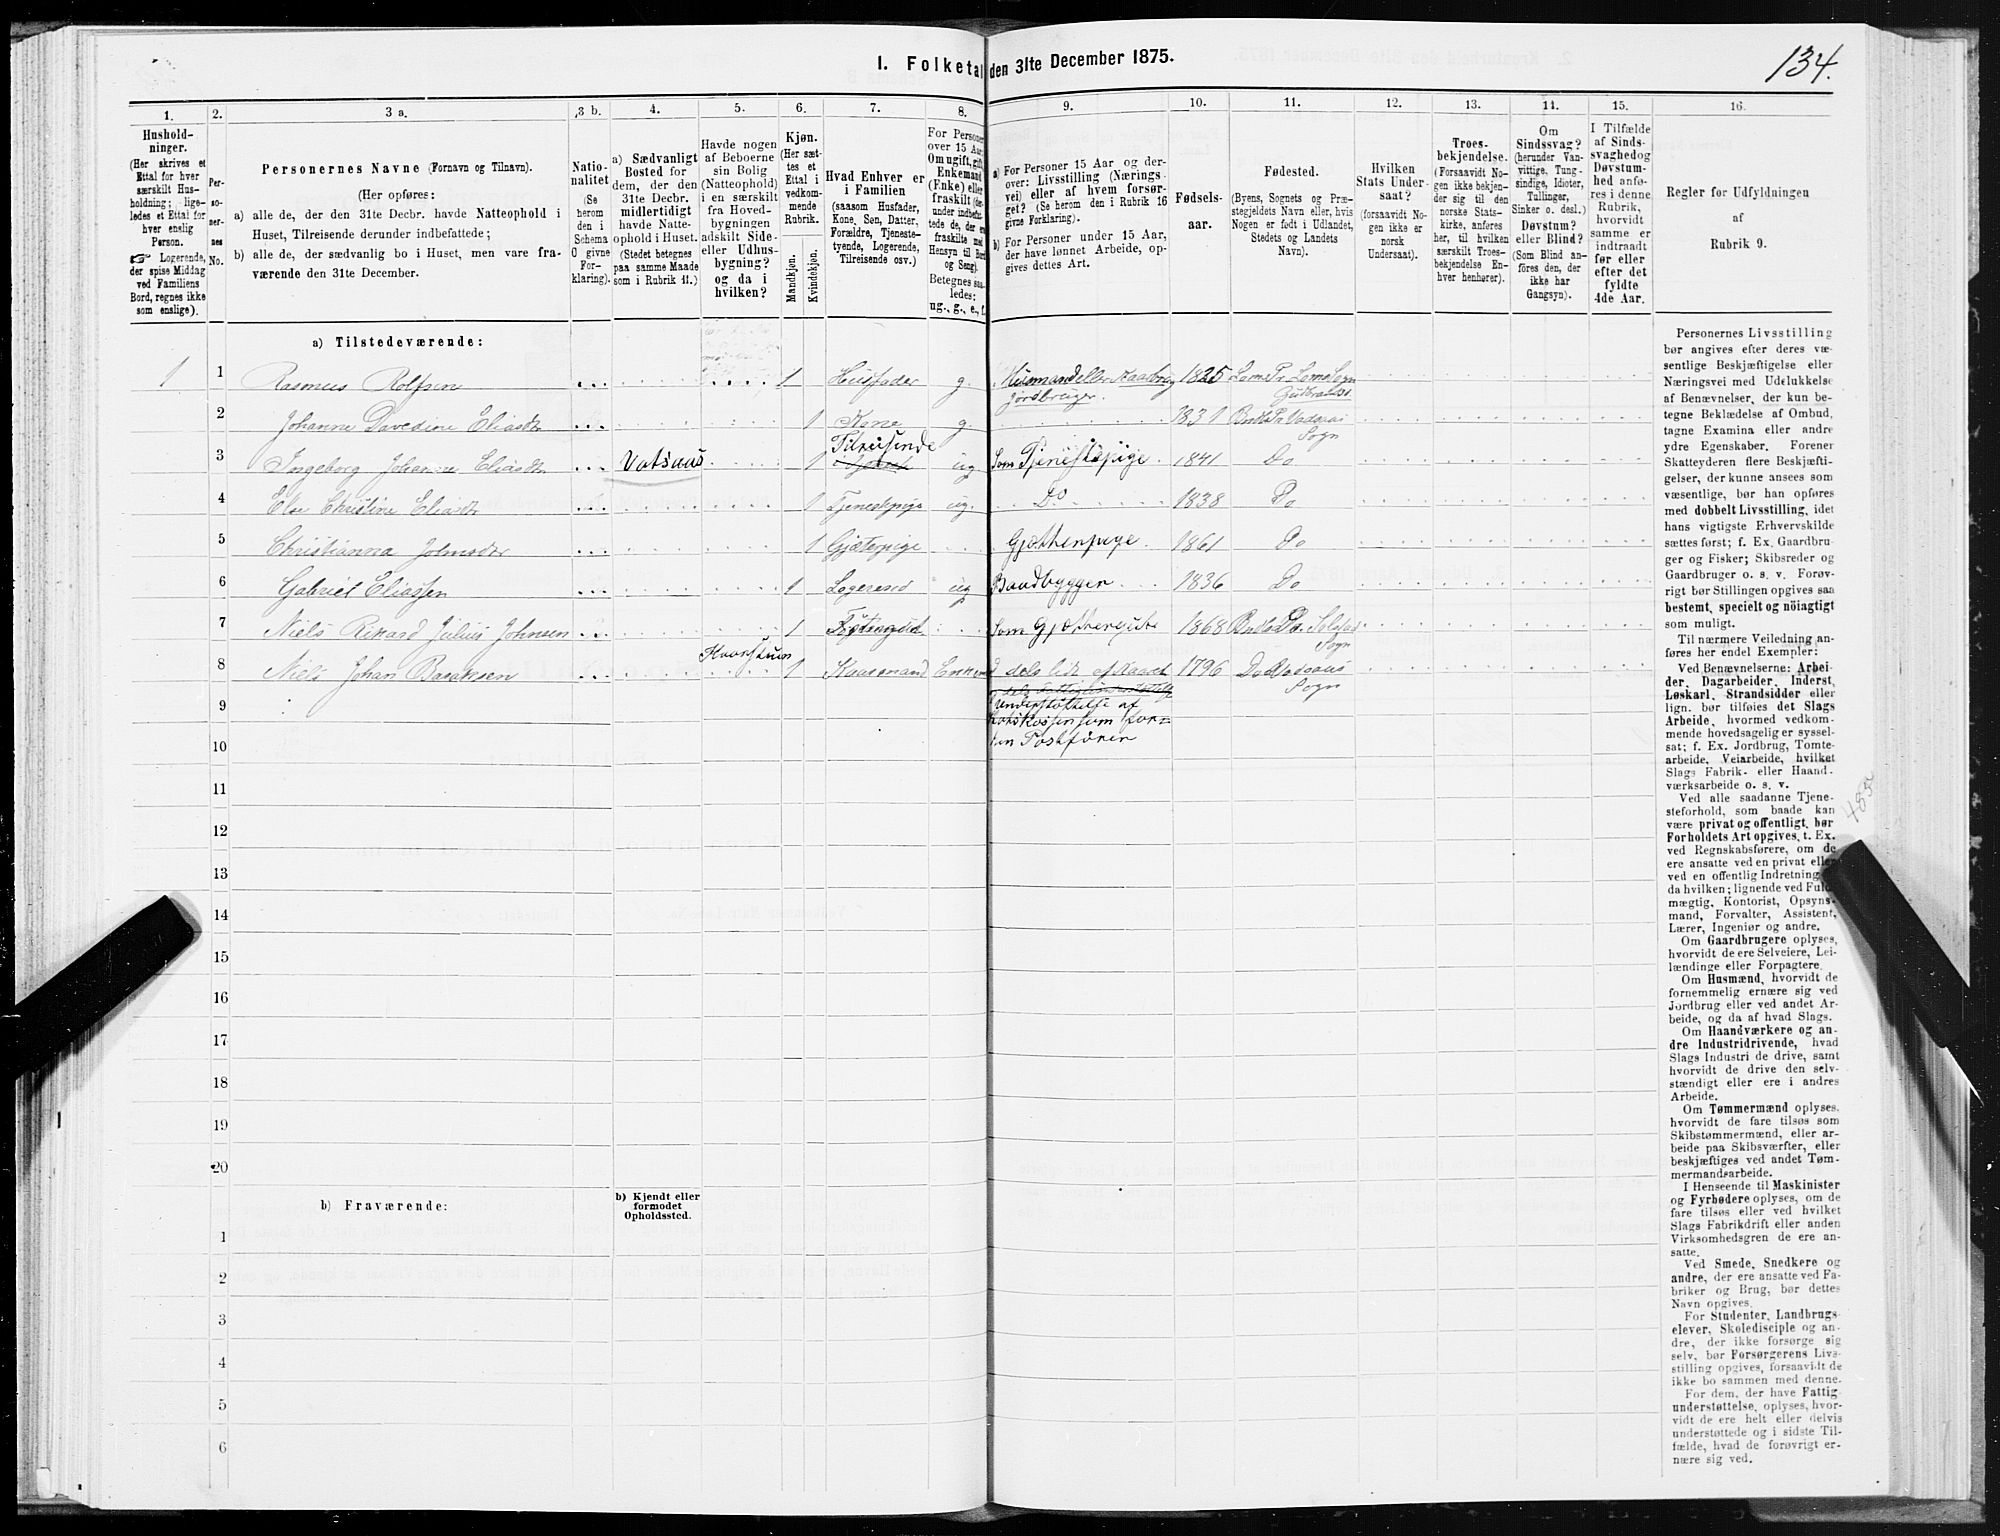 I. Folketal den 31te December 1875.
134.
1.
Hushold-
ninger.
(Her skrives et
Ettal for hver
særskilt Hus-
holdning; lige-
ledes et Ettal for
hver enslig
Person.
☞ Logerende,
der spise Middag
ved Familiens
Bord, regnes ikke
som enslige).
2.
Per-
so-
ner-
nes
No.
3 a.
Personernes Navne (Fornavn og Tilnavn).
(Her opføres:
a) alle de, der den 31te Decbr. havde Natteophold i
Huset, Tilreisende derunder indbefattede;
b) alle de, der sædvanlig bo i Huset, men vare fra-
værende den 31te December.
3 b.
Natio-
nalitet
(Se
herom
den i
Schema
6 givne
For-
klaring).
4.
a) Sædvanligt
Bosted for
dem, der den
31te Decbr.
midlertidigt
havde Natte-
ophold i Huset.
(Stedet betegnes
paa samme Maade
som i Rubrik 11.)
5.
Havde nogen
af Beboerne
sin Bolig
(Natteophold)
i en særskilt
fra Hoved-
bygningen
adskilt Side-
eller Udhus-
bygning?
og da i
hvilken?
6.
Kjøn.
(Her sæt-
tes et
Ettal i
vedkom-
mende
Rubrik.
Mandkjøn.
Kvindekjøn.
7.
Hvad Enhver er
i Familien
(saasom Husfader,
Kone, Søn, Datter,
Forældre, Tjeneste-
tyende, Logerende,
Tilreisende osv.).
8.
For Personer
over 15 Aar:
Om ugift, gift,
Enkemand
(Enke) eller
fraskilt (der-
under indbefat-
tede de, der ere
fraskilte med
Hensyn til Bord
og Seng).
Betegnes saa-
ledes:
ug., g., e., f.
9.
a) For Personer 15 Aar og der-
over: Livsstilling (Nærings-
vei) eller af hvem forsør-
get? (Se herom den i Rubrik 16
givne Forklaring).
b) For Personer under 15 Aar,
der have lønnet Arbeide, op-
gives dettes Art.
10.
Fødsels-
aar.
11.
Fødested.
(Byens, Sognets og Præ-
stegjeldets Navn eller, hvis
Nogen er født i Udlandet,
Stedets og Landets
Navn).
12.
Hvilken
Stats Under-
saat?
(forsaavidt No-
gen ikke er
norsk
Undersaat).
13.
Troes-
bekjendelse.
(Forsaavidt No-
gen ikke bekjen-
der sig til den
norske Stats-
kirke, anføres
her, til hvilken
særskilt Troes-
bekjendelse En-
hver henhører).
14.
Om
Sindssvag?
(herunder Van-
vittige, Tung-
sindige, Idioter,
Tullinger,
Sinker o. desl.)
Døvstum?
eller Blind?
(Som Blind an-
føres den, der
ikke har
Gangsyn).
15.
I Tilfælde
af Sinds-
svaghed og
Døvstum-
hed anfø-
res i denne
Rubrik,
hvorvidt
samme er
indtraadt
før eller
efter det
fyldte
4de Aar.
16.
Regler for Udfyldningen
af
Rubrik 9.
a) Tilstedeværende:
1 1 Rasmus Rolfsen 1 Husfader g. Husmand 1825
Jordbruger.
2 Johanne Davedine Eliasdr 1 Kone g. 1831
Sogn
3 Ingeborg Johanne Eliasdr Vatsaas 1 Tilreisende ug Som Tjenestepige. 1841 Do
4 Else Christine Eliasdr 1 Tjenestepige ug. Do 1838 Do
5 Christianna Johnsdr 1 Gjæterpige Gjætterpige. 1861 Do
6 Gabriel Eliassen 1 Logerend ug Baadbygger 1836 Do
7 Niels Rikard Julius Johnsen 1 Som 1868
Sogn
8 Niels Johan 1 Kaarmand 1796
Sogn
9
10
11
12
13
14
15
16
17
18
19
20
b) Fraværende:
b) Kjendt eller
formodet
Opholdssted.
1
2
3
4
5
6
Personernes Livsstilling
bør angives efter deres væ-
sentlige Beskjæftigelse eller
Næringsvei med Udelukkelse
af Benævnelser, der kun be-
tegne Beklædelse af Ombud,
tagne Examina eller andre
ydre Egenskaber. Forener
Skatteyderen flere Beskjæfti-
gelser, der kunne ansees som
væsentlige, bør han opføres
med dobbelt Livsstilling, idet
hans vigtigste Erhvervskilde
sættes først; f. Ex. Gaardbru-
ger og Fisker; Skibsreder og
Gaardbruger o. s. v. Forøv-
rigt bør Stillingen opgives saa
bestemt, specielt og nöiagtigt
som muligt.
Til nærmere Veiledning an-
føres her endel Exempler:
Ved Benævnelserne: Arbei-
der, Dagarbeider, Inderst,
Løskarl, Strandsidder eller
lign. bør tilføies det Slags
Arbeide, hvormed vedkom-
mende hovedsagelig er syssel-
sat; f. Ex. Jordbrug, Tomte-
arbeide, Veiarbeide, hvilket
Slags Fabrik- eller Haand-
værksarbeide o. s. v.
Ved alle saadanne Tjene-
steforhold, som baade kan
være privat og offentligt, bør
Forholdets Art opgives, t. Ex.
ved Regnskabsførere, om de
ere ansatte ved en privat eller
ved en offentlig Indretning og
da hvilken; lignende ved Fuld-
mægtig, Kontorist, Opsyns-
mand, Forvalter, Assistent,
Lærer, Ingeniør og andre.
Om Gaardbrugere oplyses,
hvorvidt de ere Selveiere, Lei-
lændinge eller Forpagtere.
Om Husmænd, hvorvidt de
fornemmelig ernære sig ved
Jordbrug eller ved andet Ar-
beide, og da af hvad Slags.
Om Haandværkere og an-
dre Industridrivende, hvad
Slags Industri de drive, samt
hvorvidt de drive den selv-
stændigt eller ere i andres
Arbeide.
Om Tømmermænd oplyses,
hvorvidt de fare tilsøs som
Skibstømmermænd, eller ar-
beide paa Skibsværfter, eller
beskjæftiges ved andet Tøm-
mermandsarbeide.
I Henseende til Maskinister
og Fyrbødere oplyses, om de
fare tilsøs eller ved hvilket
Slags Fabrikdrift eller anden
Virksomhedsgren de ere an-
satte.
Ved Smede, Snedkere og
andre, der ere ansatte ved Fa-
briker og Brug, bør dettes
Navn opgives.
For Studenter, Landbrugs-
elever, Skoledisciple og an-
dre, der ikke forsørge sig
selv, bør Forsørgerens Livs-
stilling opgives, forsaavidt de
ikke bo sammen med denne.
For dem, der have Fattig-
understøttelse, oplyses, hvor-
vidt de ere helt eller delvis
understøttede og i sidste Til-
fælde, hvad de forøvrigt er-
nære sig ved.
485